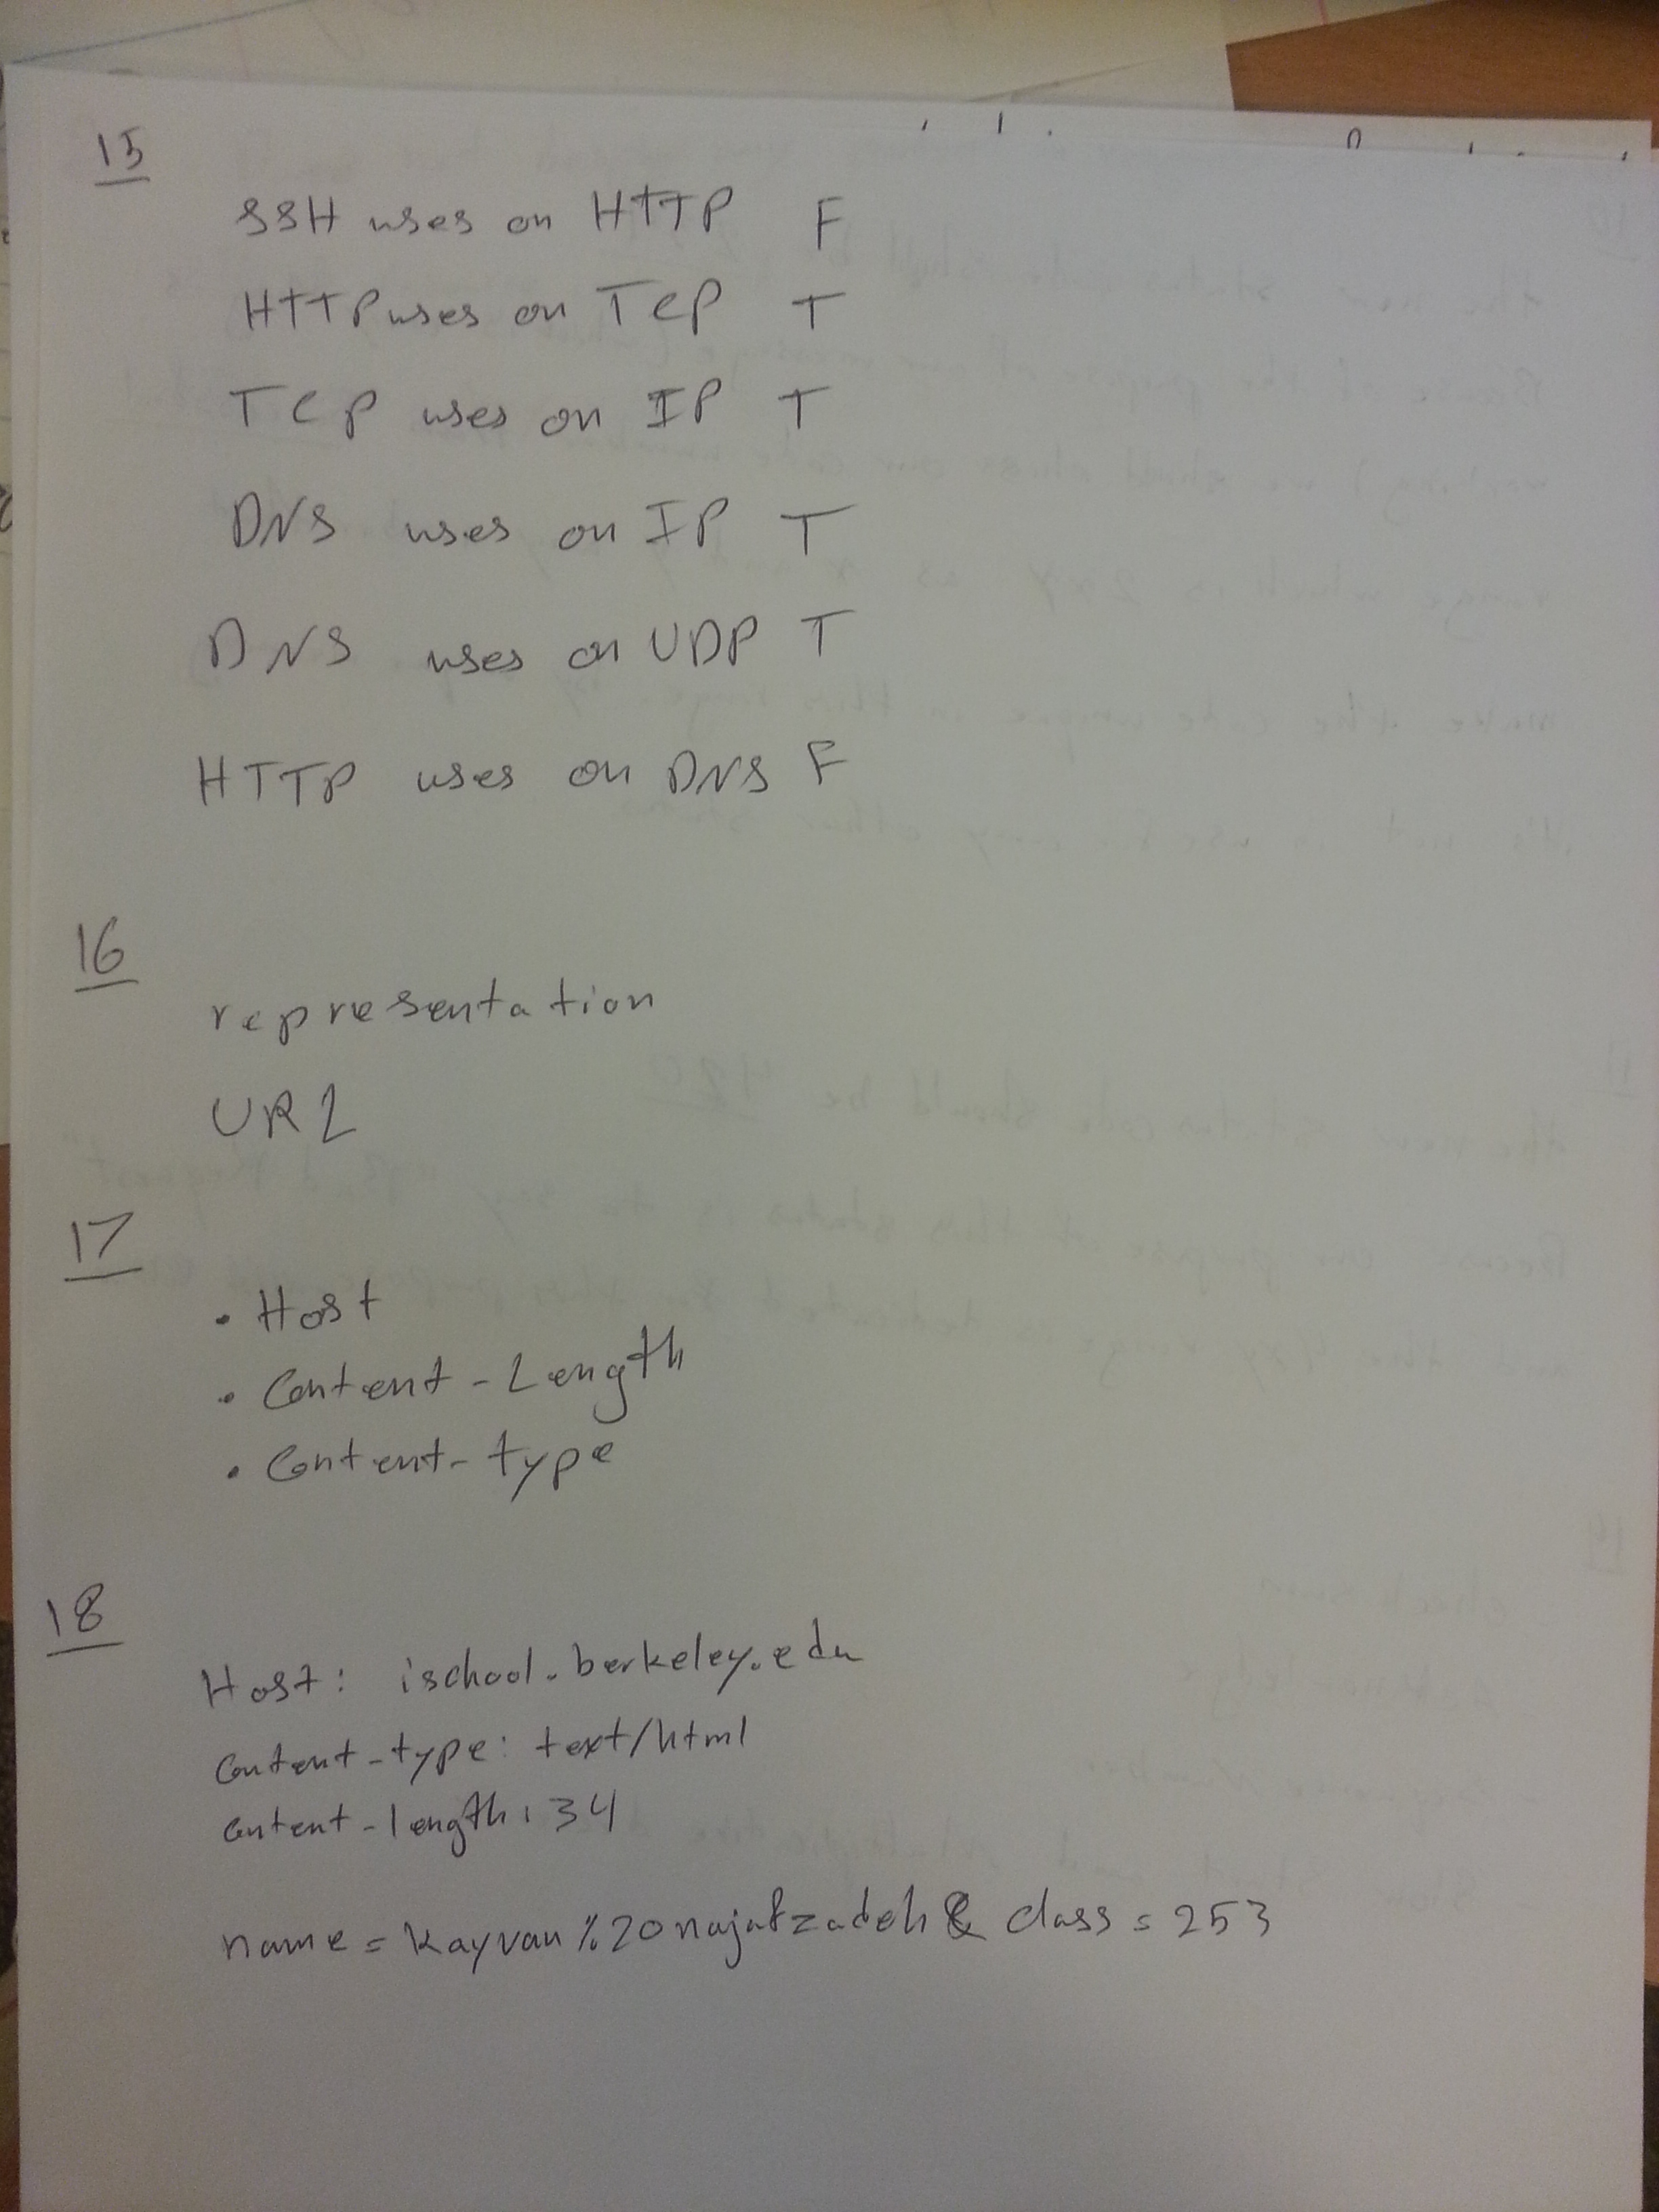 15
SSH uses on HTTP F
HTTP uses on TCP T
TCP uses on IP T
DNS uses on IP T
DNS uses on UDP T
HTTP uses on DNS F
16
representation
URL
17
• Host
• Content-Length
• Content-type
18
Host: ischool.berkeley.edu
content-type: text/html
content-length: 34
name=kayvan%20najafzadeh&class=253